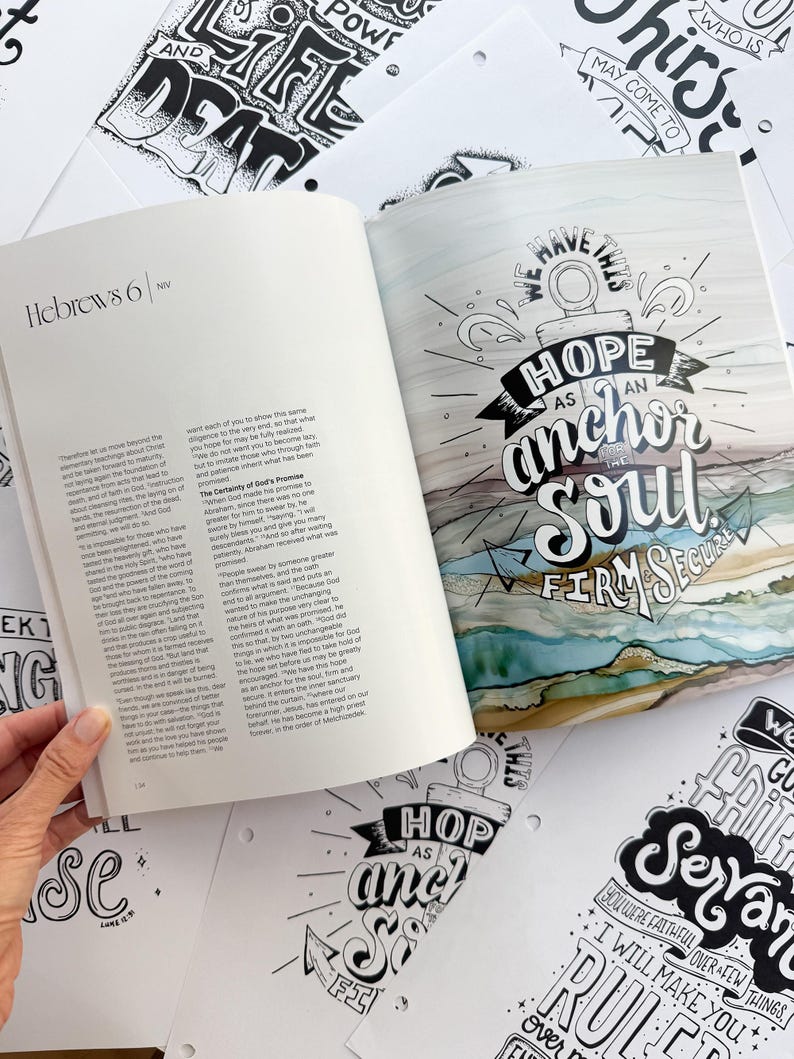 OF
POWE
LIFE
AND
DEAT
WHO IS
Thirs
MAY COME TO
Hebrews 6 | NIV
¹Therefore let us move beyond the
elementary teachings about Christ
and be taken forward to maturity,
not laying again the foundation of
repentance from acts that lead to
death, and of faith in God, ²instruction
about cleansing rites, the laying on of
hands, the resurrection of the dead,
and eternal judgment. ³And God
permitting, we will do so.
⁴It is impossible for those who
have once been enlightened, who have
tasted the heavenly gift, who have
shared in the Holy Spirit, ⁵who have
tasted the goodness of the word of
God and the powers of the coming
age ⁶and who have fallen away, to
be brought back to repentance. To
their loss they are crucifying the Son
of God all over again and subjecting
him to public disgrace. ⁷Land that
drinks in the rain often falling on it
and that produces a crop useful to
those for whom it is farmed receives
the blessing of God. ⁸But land that
produces thorns and thistles is
worthless and is in danger of being
cursed. In the end it will be burned.
⁹Even though we speak like this, dear
friends, we are convinced of better
things in your case—the things that
have to do with salvation. ¹⁰God is
not unjust; he will not forget your
work and the love you have shown
him as you have helped his people
and continue to help them. ¹¹We
want each of you to show this same
diligence to the very end, so that what
you hope for may be fully realized.
¹²We do not want you to become lazy,
but to imitate those who through faith
and patience inherit what has been
promised.
The Certainty of God's Promise
¹³When God made his promise to
Abraham, since there was no one
greater for him to swear by, he
swore by himself, ¹⁴saying, "I will
surely bless you and give you many
descendants." ¹⁵And so after waiting
patiently, Abraham received what was
promised.
¹⁶People swear by someone greater
than themselves, and the oath
confirms what is said and puts an
end to all argument. ¹⁷Because God
wanted to make the unchanging
nature of his purpose very clear to
the heirs of what was promised, he
confirmed it with an oath. ¹⁸God did
this so that, by two unchangeable
things in which it is impossible for God
to lie, we who have fled to take hold of
the hope set before us may be greatly
encouraged. ¹⁹We have this hope
as an anchor for the soul, firm and
secure. It enters the inner sanctuary
behind the curtain, ²⁰where our
forerunner, Jesus, has entered on our
behalf. He has become a high priest
forever, in the order of Melchizedek.
134
WE HAVE THIS
HOPE
AS AN
anchor
FOR
THE
Soul,
FIRM & SECURE
LUKE 12:31
THIS
HOP
AS
anch
So
FI
We
GO
FAITH
Servan
YOU WERE FAITHFUL
OVER A FEW THINGS,
I WILL MAKE YOU
RULER
over m